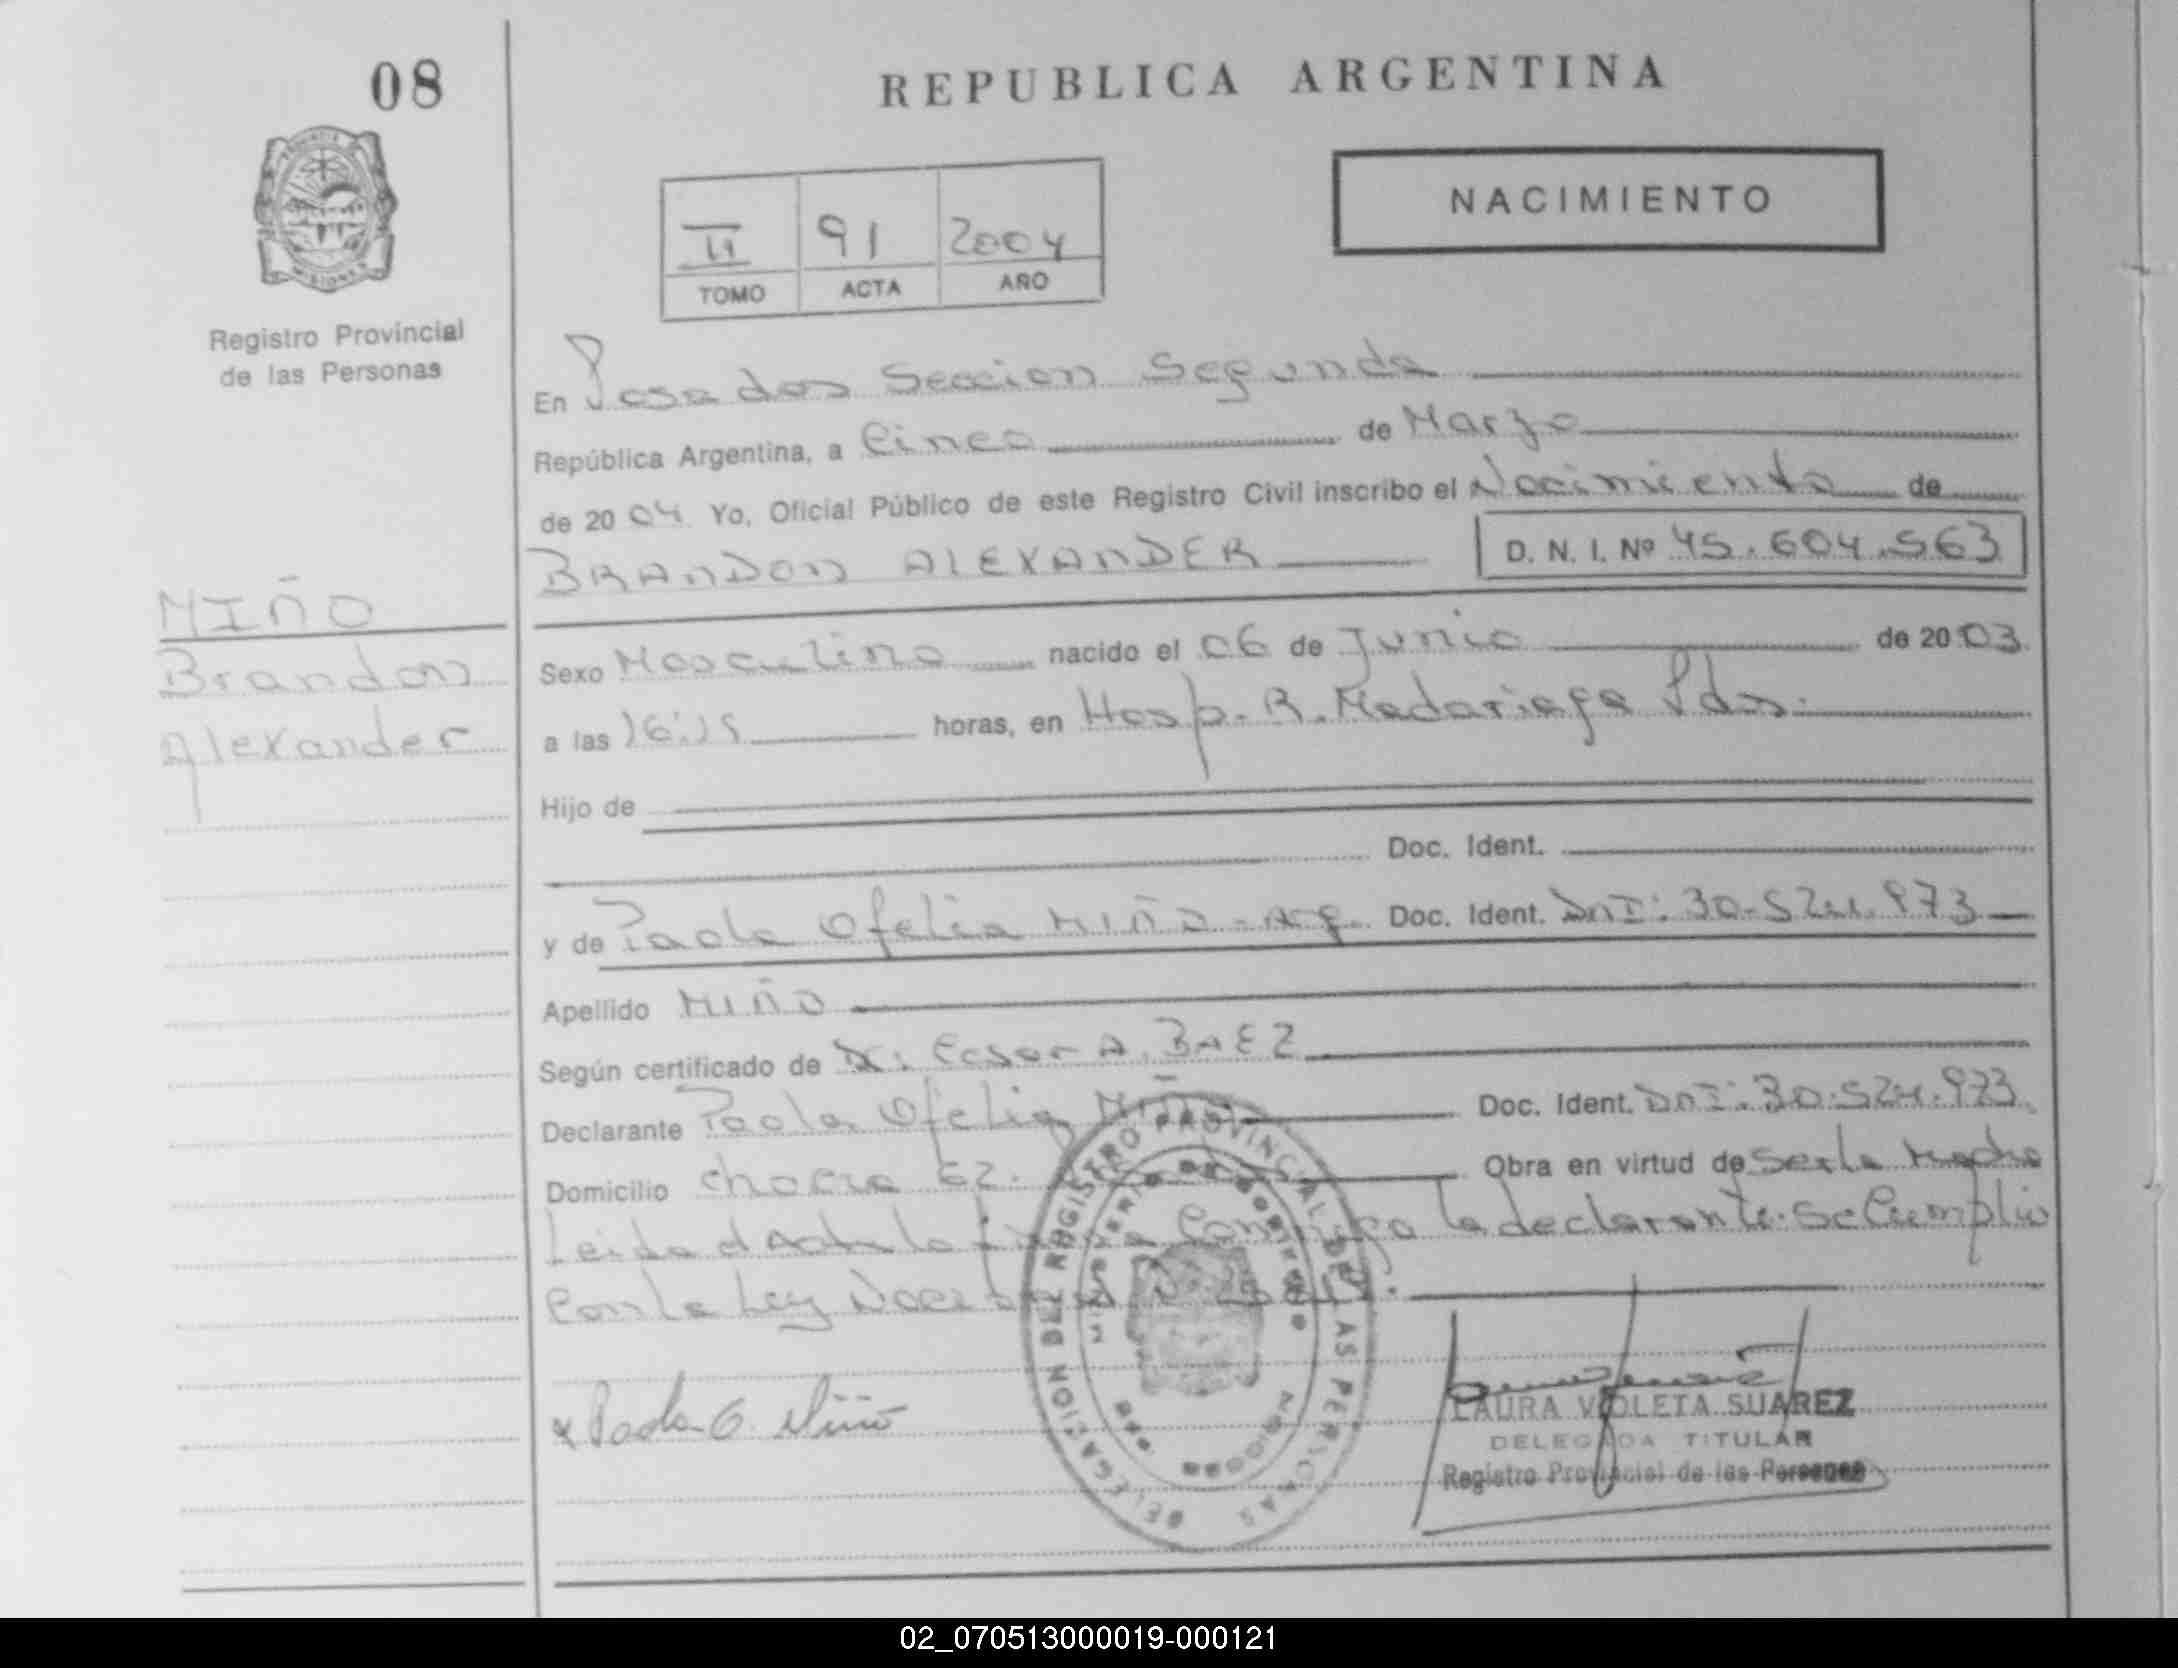 08
REPUBLICA ARGENTINA
PROVINCIA
MISIONES
Registro Provincial
de las Personas
II 91 2004
TOMO ACTA AÑO
NACIMIENTO
En Posadas Seccion Segunda
República Argentina, a Cinco de Marzo
de 2004 Yo, Oficial Público de este Registro Civil inscribo el Nacimiento de
BRANDON ALEXANDER D. N. I. Nº 45.604.563
MIÑO
Brandon
Alexander
Sexo Masculino nacido el 06 de Junio de 2003
a las 16:15 horas, en Hosp. R. Madariaga Pdas.
Hijo de
Doc. Ident.
y de Paola Ofelia MIÑO - Arg. Doc. Ident. DNI: 30.524.973
Apellido MIÑO
Según certificado de Dr. Cesar A. BAEZ
Declarante Paola Ofelia MIÑO Doc. Ident. DNI: 30.524.973
Domicilio chacra 62. Obra en virtud de ser la Madre
Leida el Acta la firma Conmigo la declarante. Se Cumplio
Con la Ley
Paola O. Miño
DELEGACION DEL REGISTRO PROVINCIAL DE LAS PERSONAS
MINISTERIO DE GOBIERNO
LAURA VIOLETA SUAREZ
DELEGADA TITULAR
Registro Provincial de las Personas
02_070513000019-000121